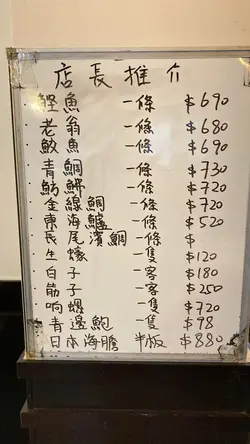 店長推介
鰹魚 一條 $690
老翁 一條 $680
敏魚 一條 $690
青鯛 一條 $730
魴鮄 一條 $720
金線鯛 一條 $720
東海鱸 一條 $520
長尾濱鯛 一條 $
生蠔 一隻 $120
白子 一客 $180
筋子 一客 $250
响螺 一隻 $720
青邊鮑 一隻 $98
日本海膽 半板 $880